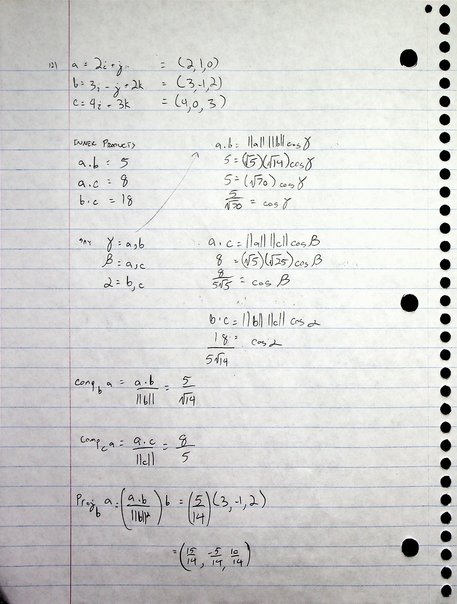 12) a = 2i + j = (2,1,0)
b = 3i - j + 2k = (3,-1,2)
c = 4i + 3k = (4,0,3)
INNER PRODUCTS
a.b = 5
a.c = 8
b.c = 18
a.b = ||a|| ||b|| cos γ
5 = (√5)(√14) cos γ
5 = (√70) cos γ
5/√70 = cos γ
SAY γ = a,b
β = a,c
α = b,c
a.c = ||a|| ||c|| cos β
8 = (√5)(√25) cos β
8/5√5 = cos β
b.c = ||b|| ||c|| cos α
18/5√14 = cos α
comp_b a = a.b/||b|| = 5/√14
comp_c a = a.c/||c|| = 8/5
Proj_b a = (a.b/||b||²) b = (5/14)(3,-1,2)
= (15/14, -5/14, 10/14)